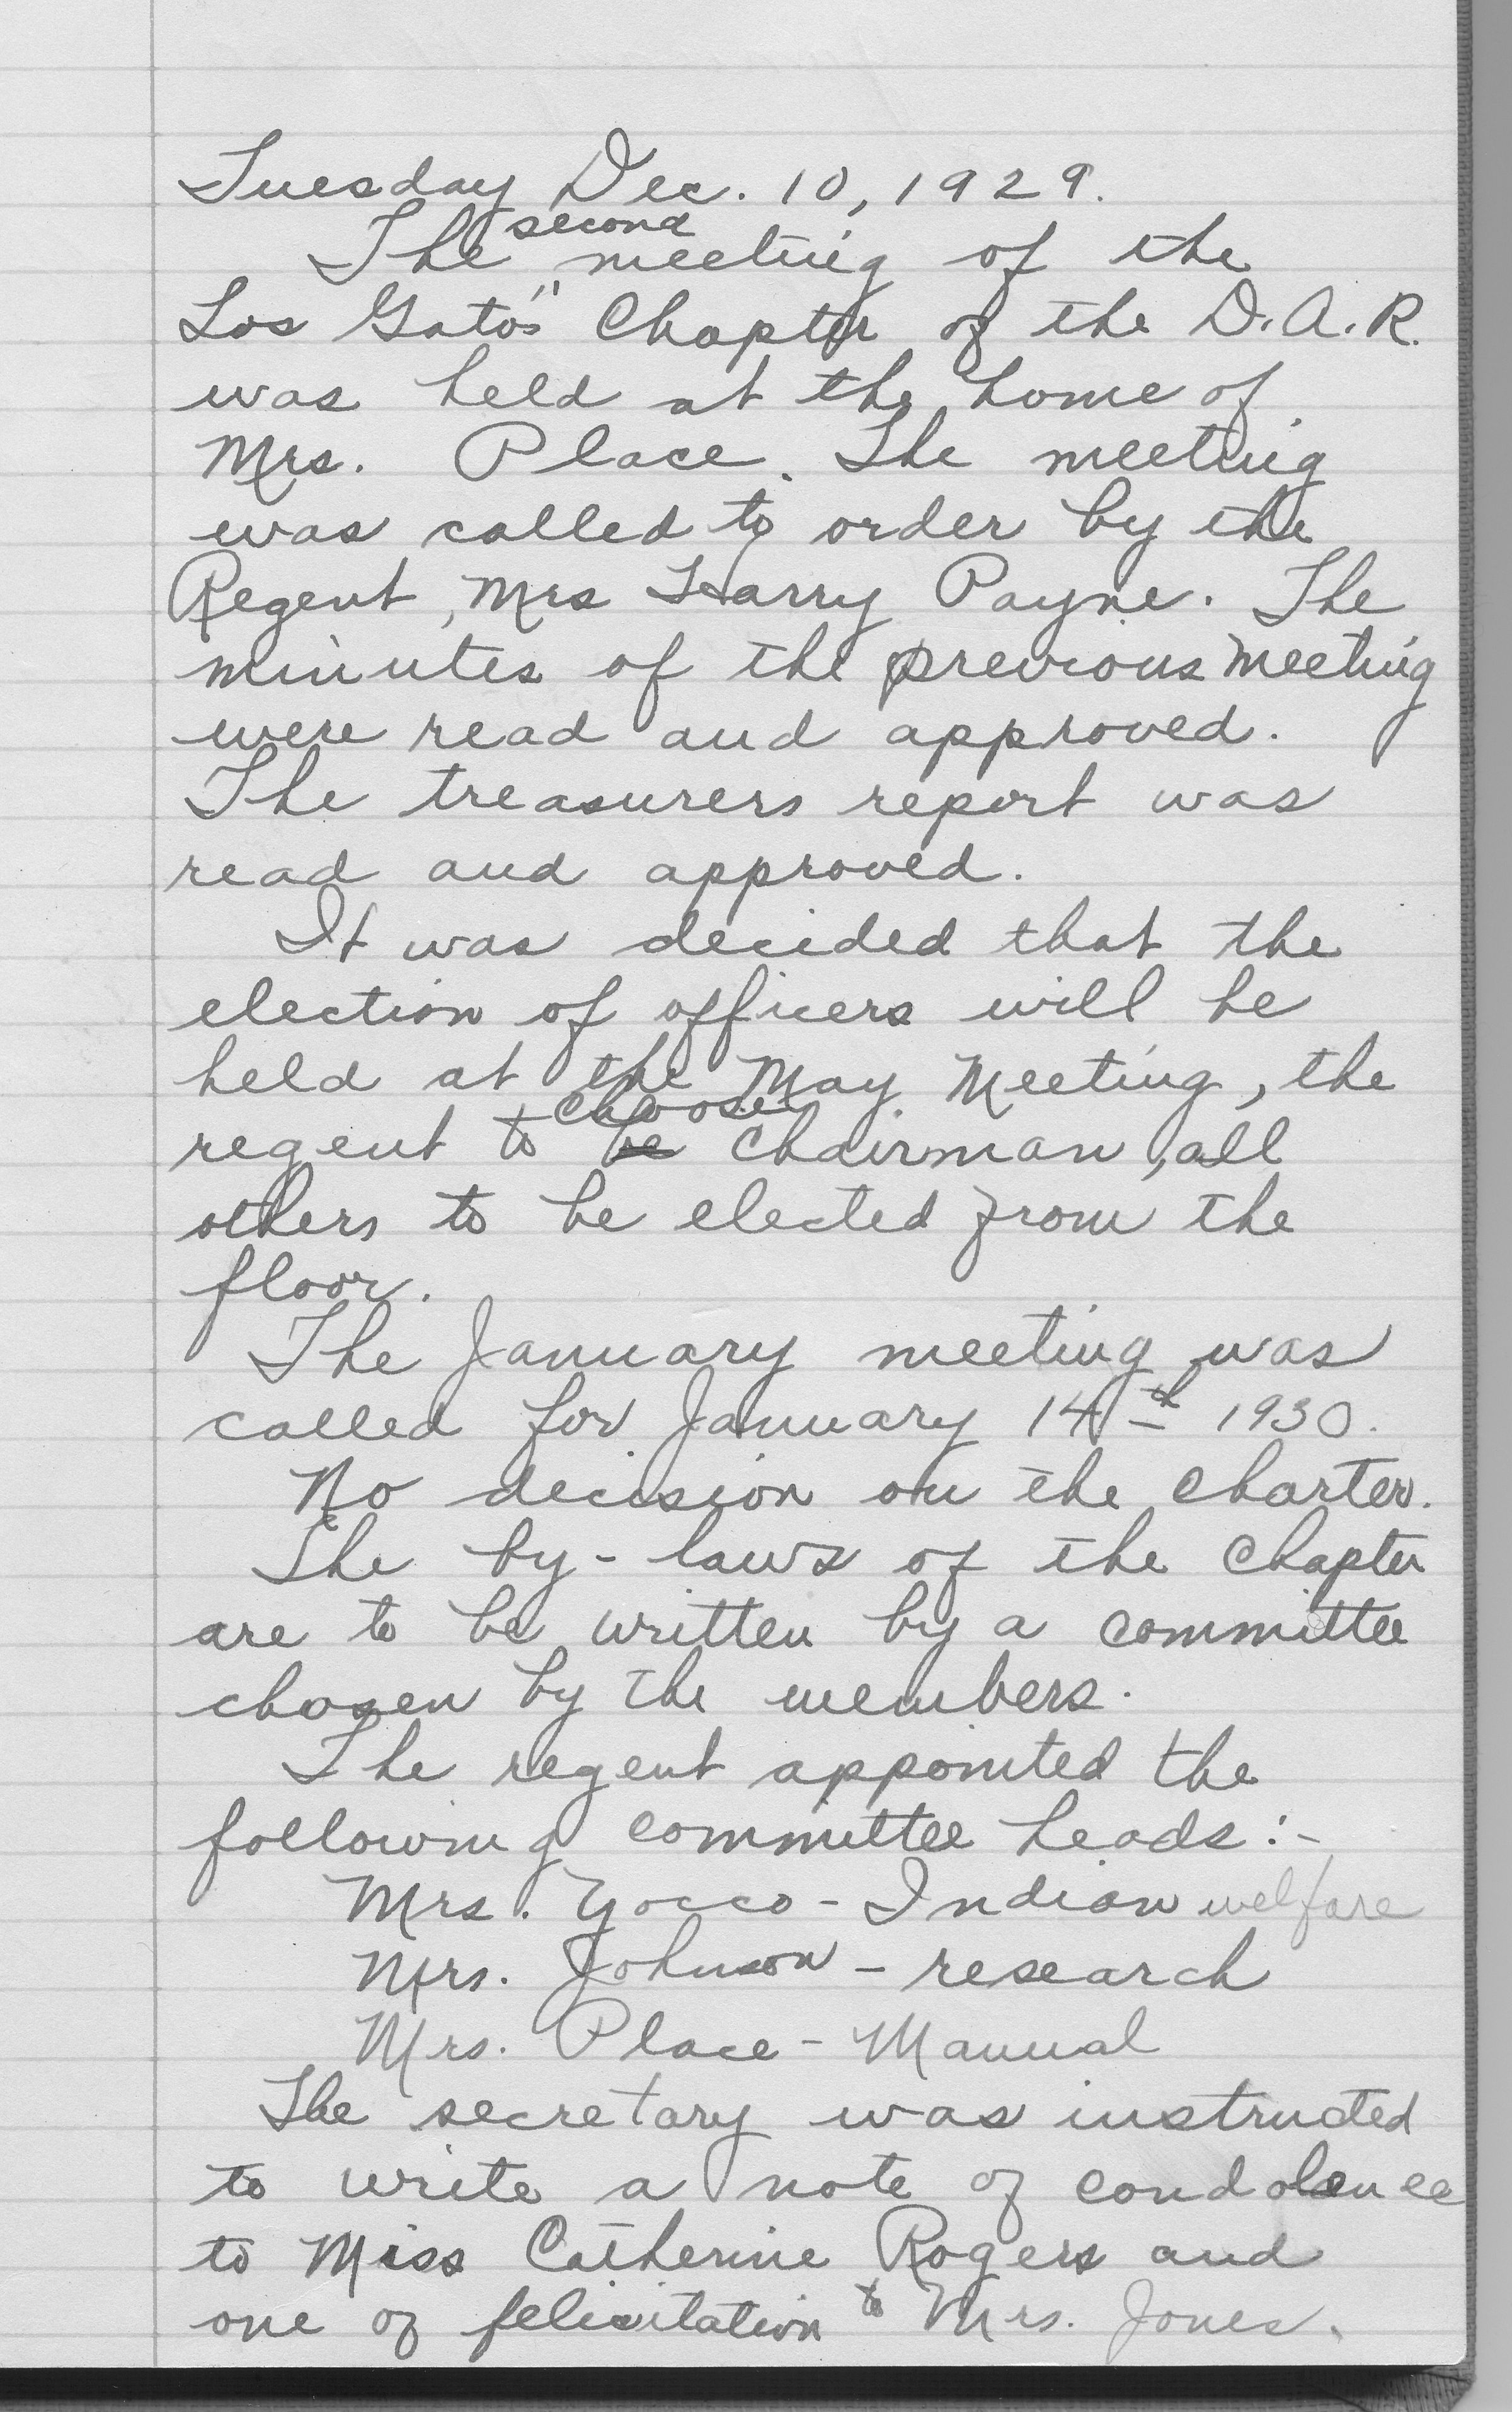 Tuesday Dec. 10, 1929.
The second meeting of the
Los Gatos" Chapter of the D.A.R.
was held at the home of
Mrs. Place. The meeting
was called to order by the
Regent, Mrs Harry Payne. The
minutes of the previous meeting
were read and approved.
The treasurers report was
read and approved.
It was decided that the
election of officers will be
held at the May Meeting, the
regent to be choose chairman, all
others to be elected from the
floor.
The January meeting was
called for January 14th 1930.
No decision on the charter.
The by-laws of the Chapter
are to be written by a committee
chosen by the members.
The regent appointed the
following committee heads:-
Mrs. Yocco - Indian welfare
Mrs. Johnson - research
Mrs. Place - Manual
The secretary was instructed
to write a note of condolence
to Miss Catherine Rogers and
one of felicitation to Mrs. Jones.